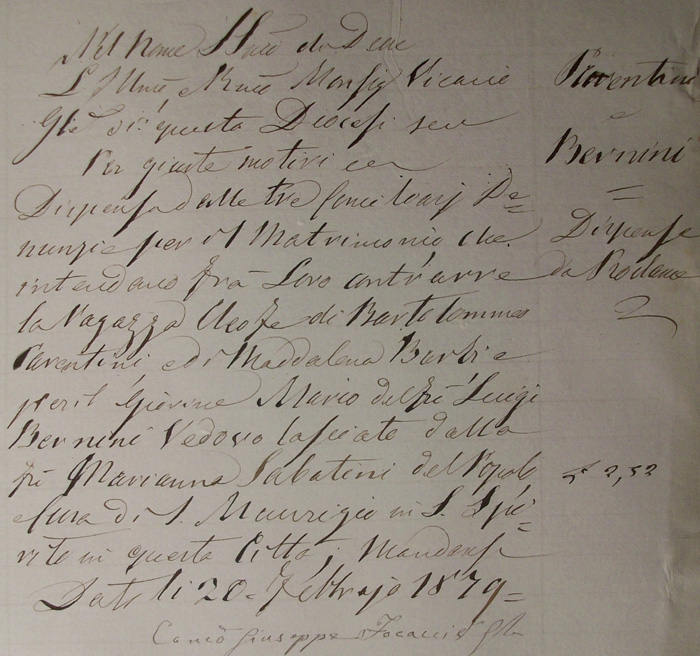 Nel Nome SSmo di Dio
L'Illmo e Rmo Monsig Vicario
Gle di questa Diocesi
Per giuste motivi
Dispensa dalle tre Conciliarj De=
nunzie per il Matrimonio che
intendano frà Loro contrarre
la Ragazza Cleofe di Bartolommeo
Parentini, e di Maddalena Barbi e
per il Giovine Mario del fù Luigi
Bernini Vedovo lasciato dalla
fù Marianna Sabatini del Popolo
e Cura di S. Maurizio in S. Spi=
rito in questa Città; Mandansi
Dato li 20. Febbrajo 1879=
Canco Giuseppe Focacci
Fiorentini
e
Bernini
=
Dispensa
da Proclame
2,52